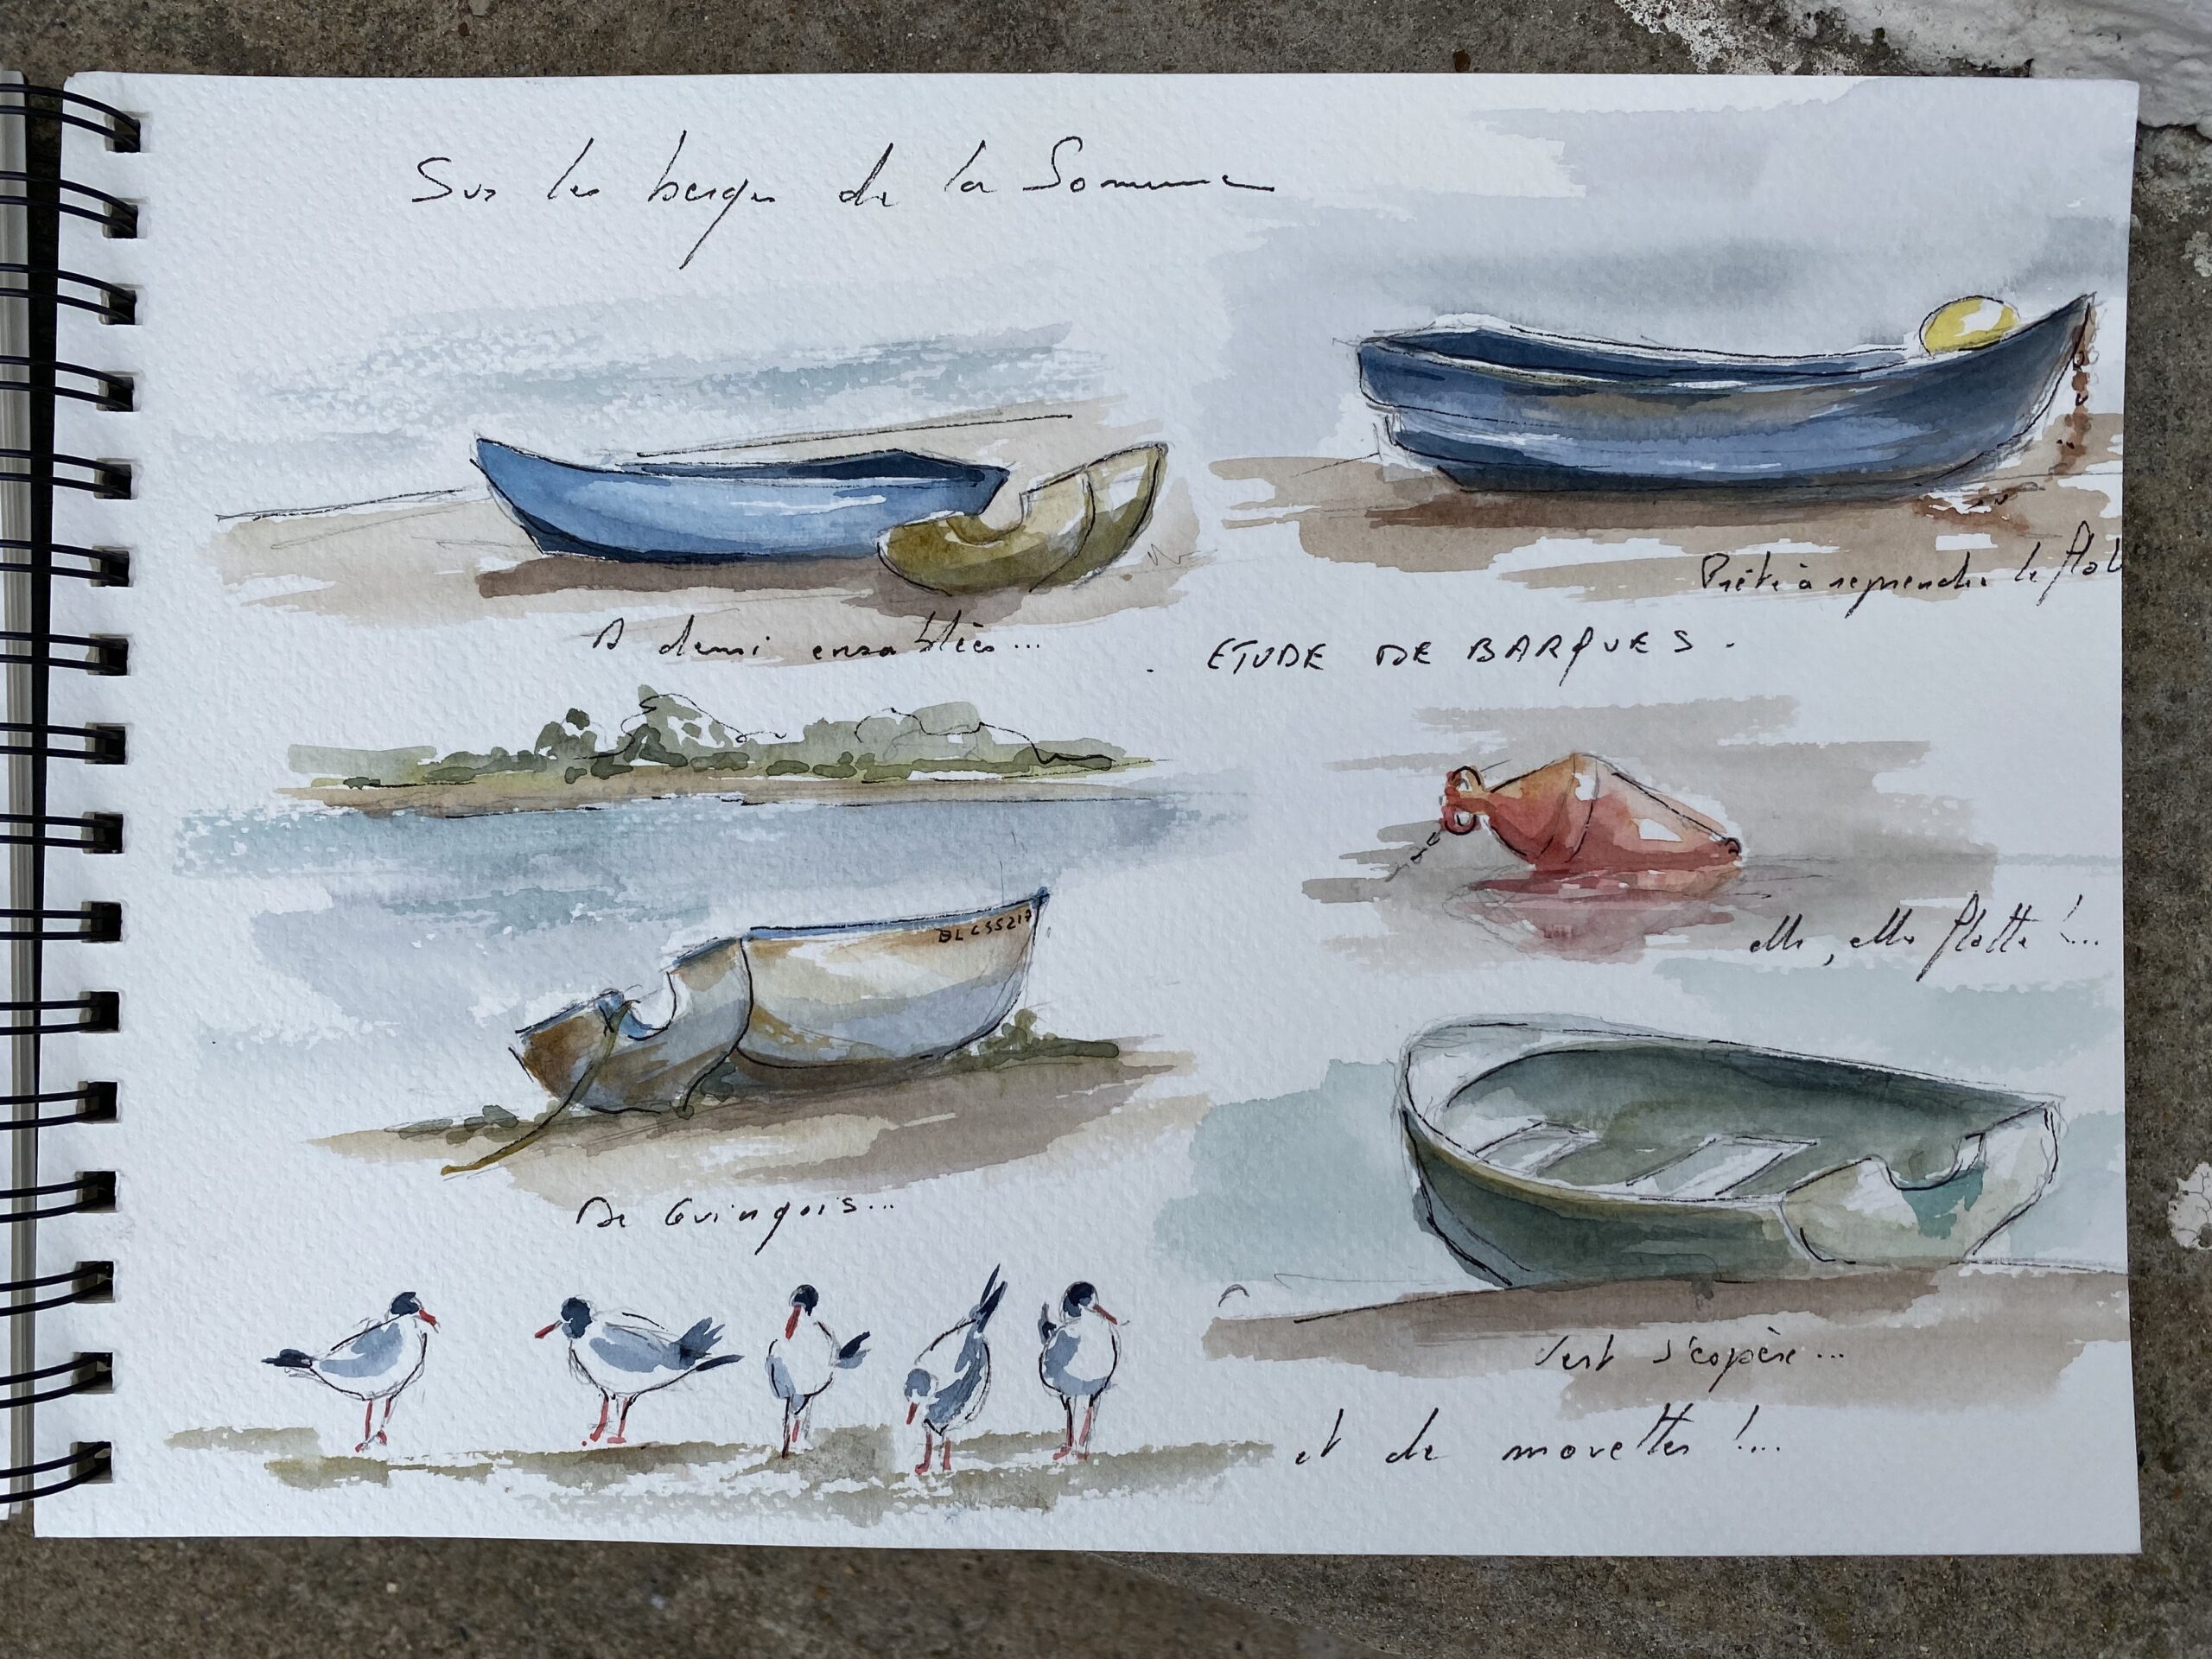 Sur les berges de la Somme
Prête à reprendre le flot
A demi ensablées...
. ETUDE DE BARQUES .
elle, elle flotte !...
De Guingois...
Vert s'copère...
et de mouettes !...